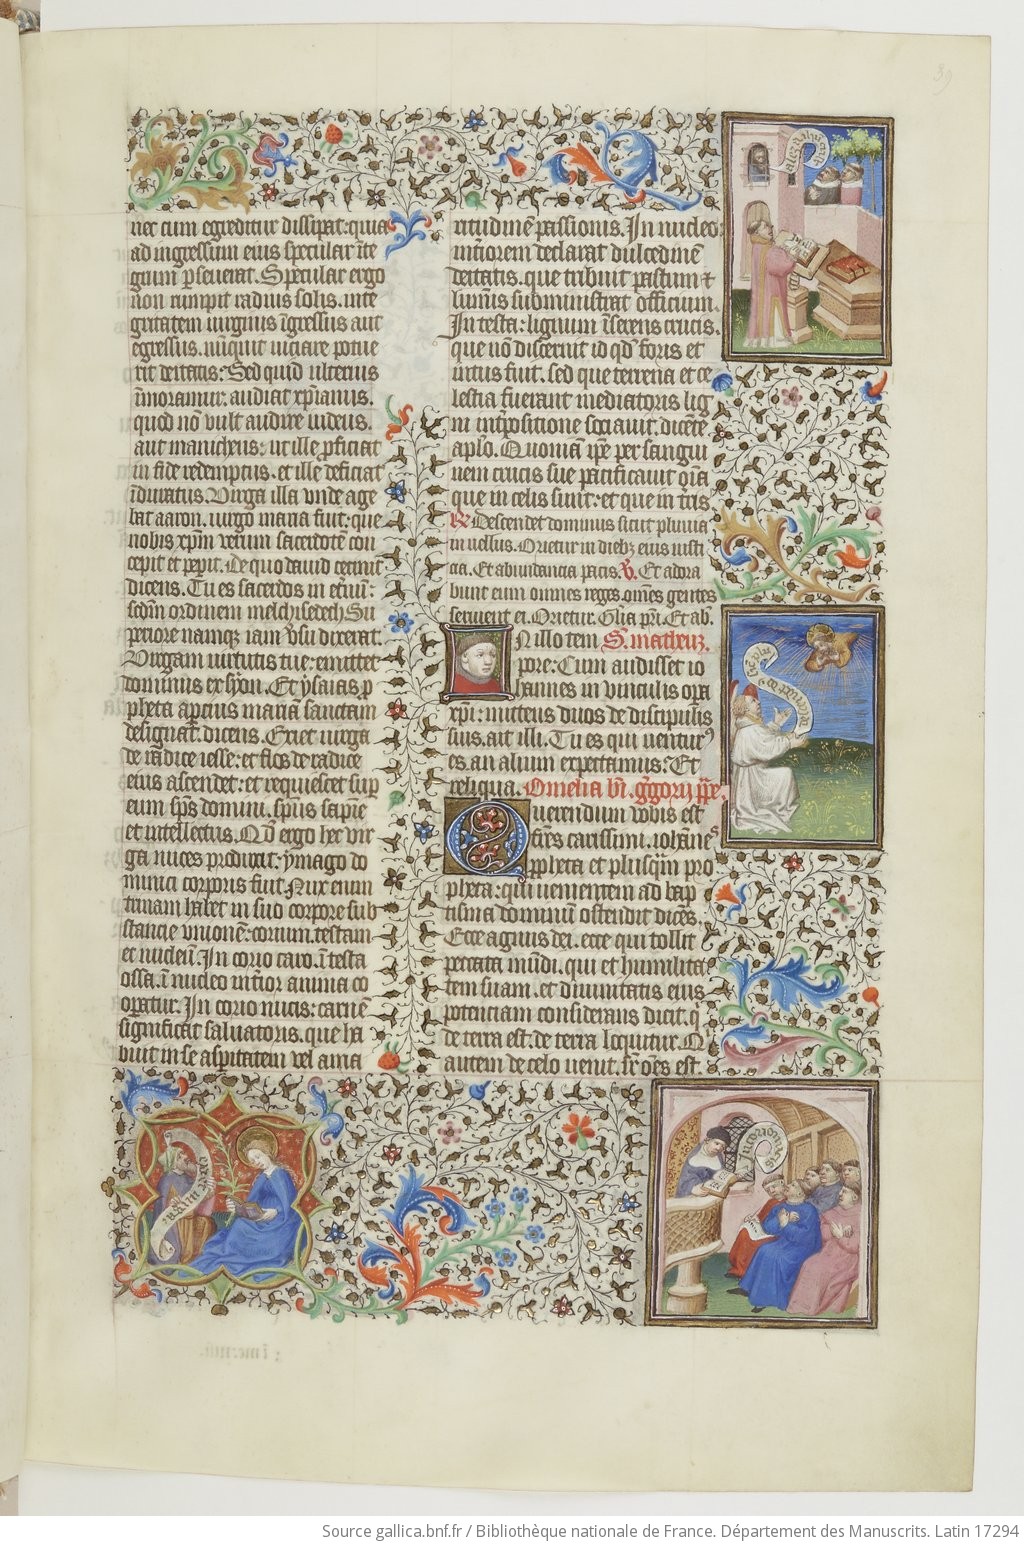 39
nec cum egreditur dissipat: quia
ad ingressum eius specular īte
grum ꝑseuerat. Specular ergo
non rumpit radius solis. inte
gritatem uirginis īgressus aut
egressus. nūquit uiciare potue
rit deitatis: Sed quid ulterius
īmoramur. audiat xp̄ianus.
quod nō vult audire iudeus.
aut manicheus: ut ille ꝓficiat
in fide redemptus. et ille deficiat
īduratus. Virga illa vnde age
bat aaron. uirgo maria fuit: que
nobis xp̄m verum sacerdotē con
cepit et peperit. De quo dauid cecinit
dicens. Tu es sacerdos in et̄nū:
scdm̄ ordinem melchisedech Su
periore namq̨ iam v̄su dixerat.
Virgam uirtutis tue: emittet
dominus ex syon. Et ysaias ꝓ
pheta apcius mariā sanctam
designat̄. dicens. Exiet uirga
de radice iesse: et flos de radice
eius ascendet: et requiescet sup
eum sp̄s domini. sp̄us sapie
et intellectus. Qd̄ ergo hec vir
ga nuces produxit: ymago do
minici corporis fuit. Nux enim
trinam habet in suo corpore sub
stancie vnionē: corium. testam
et nucleū. In corio caro. ī testa
ossa. ī nucleo int̄ior anima co
opatur. In corio nucis: carnē
significat saluatoris. que ha
buit in se aspitatem vel ama
ritudinē passionis. In nucleo
int̄iorem declarat dulcedinē
deitatis. que tribuit pastum et
luminis subministrat officium.
In testa: lignum īserens crucis.
que nō discernit id qd̄ foris et
intus fuit. sed que terrena et ce
lestia fuerant mediatoris lig
ni int̄positione sociauit. dicēte
aplo. Quoniā ip̄e per sangui
nem crucis sue pacificauit oīa
que in celis sunt: et que in t̄ris
R̸ Descendet dominus sicut pluuia
in uellus. Orietur in diebꝫ eius iusti
cia. Et abundancia pacis. V̸. Et adora
bunt eum omnes reges omēs gentes
seruient ei. Orietur. Gl̄ia pr̄i. Et ab̄.
IN illo tem S. matheuꝫ.
pore: Cum audisset io
hannes in vinculis opa
xp̄i: mittens duos de discipulis
suis. ait illi. Tu es qui uenturꝰ
es. an alium expectamus: Et
reliqua. Omelia bī. ḡgorii pp̄e.
Querendum vobis est
fr̄es carissimi. iohānes
ꝓpheta et plusq̄m pro
pheta: qui uenientem ad bap
tisma dominū ostendit dicēs.
Ecce agnus dei. ecce qui tollit
peccata mūdi. qui et humilita
tem suam. et diuinitatis eius
potenciam considerans dicit. q̄
de terra est: de terra loquitur. Q
autem de celo uenit. sr̄ oēs est.
Source gallica.bnf.fr / Bibliothèque nationale de France. Département des Manuscrits. Latin 17294